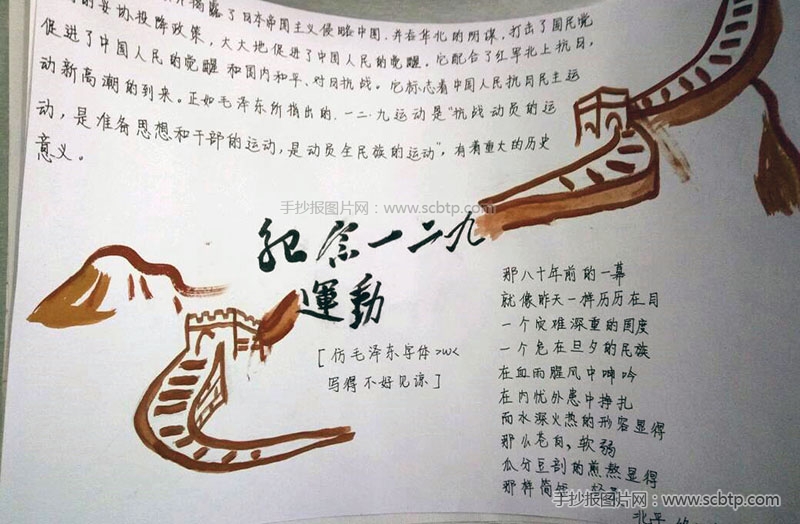 揭露了日本帝国主义侵略中国,并吞华北的阴谋,打击了国民党
的妥协投降政策,大大地促进了中国人民的觉醒。它配合了红军北上抗日,
促进了中国人民的觉醒和国内和平、对日抗战。它标志着中国人民抗日民主运
动新高潮的到来。正如毛泽东所指出的,一二·九运动是“抗战动员的运
动,是准备思想和干部的运动,是动员全民族的运动”,有着重大的历史
意义。
手抄报图片网:www.scbtp.com
纪念一二九
運動
[仿毛泽东字体>w<
写得不好见谅]
那八十年前的一幕
就像昨天一样历历在目
一个灾难深重的国度
一个危在旦夕的民族
在血雨腥风中呻吟
在内忧外患中挣扎
而水深火热的形容显得
那么苍白,软弱
瓜分豆剖的煎熬显得
那样简
手抄报图片网:www.scbtp.com
北平